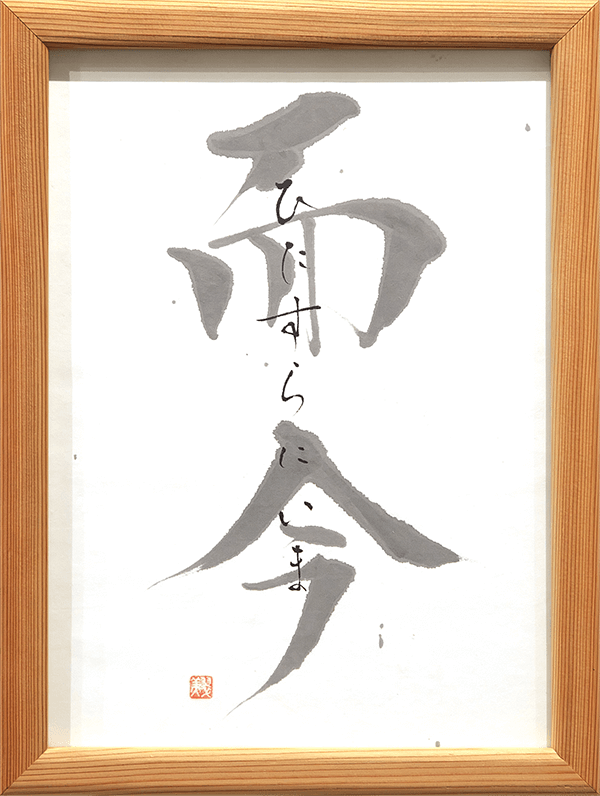 而今
ひたすらにいま